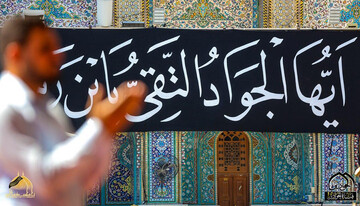 أَيُّهَا الْجَوَادُ التَّقِيُّ يَابْنَ